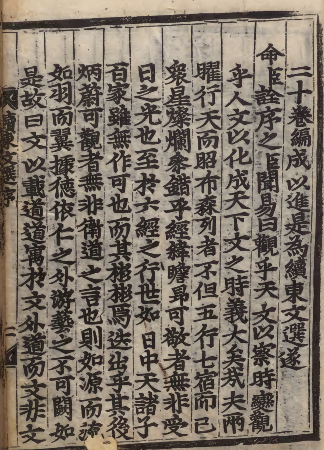 二十卷編成以進是爲續東文選遂
命臣詮序之臣聞易曰觀乎天文以察時變觀
乎人文以化成天下文之時義大矣哉夫兩
曜行天而昭布森列者不但五行七宿而已
衆星燦爛參錯乎經緯暸昴可敬者無非受
日之光也至於六經之行世如日中天諸子
百家雖無作可也而其彬彬焉迭出乎其後
炳蔚可觀者無非衛道之言也則如源而
如羽而翼據德依仁之外游藝之不可闕如
是故曰文以載道道寓於文外道而文非文
續東文選序
二